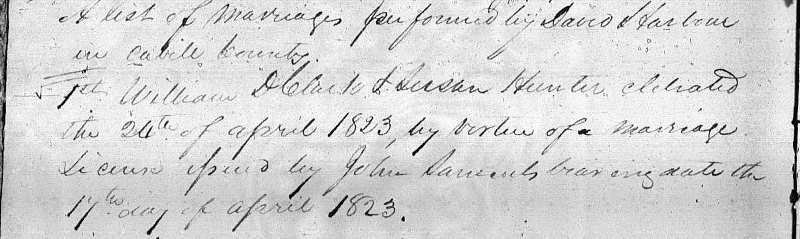 A list of Marriages performed by David Harbour
in Cabell County
1st William D Clark & Susan Hunter clebrated
the 24th of april 1823, by virtue of a Marriage
License issued by John Samuels bearing date the
17th day of april 1823.